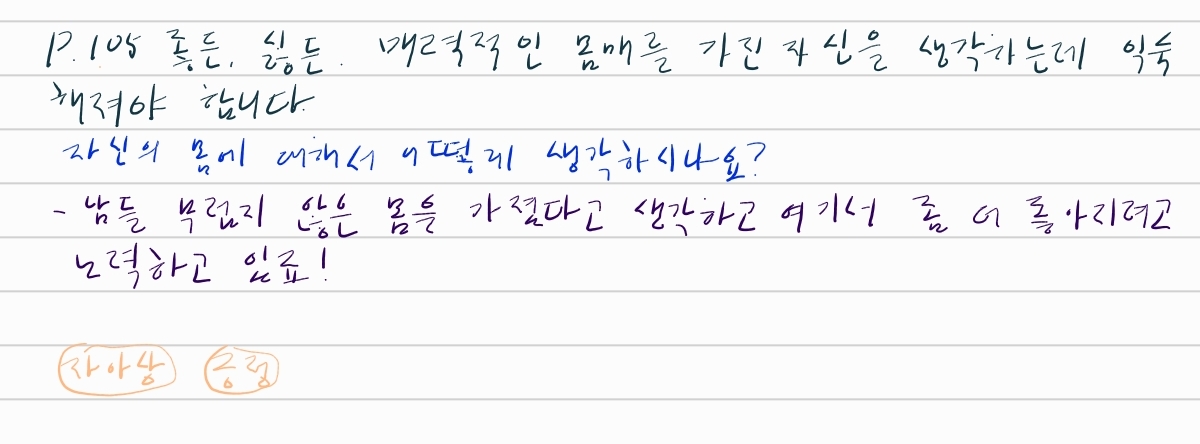 P.105 좋든, 싫든. 매력적인 몸매를 가진 자신을 생각하는데 익숙
해져야 합니다
자신의 몸에 대해서 어떻게 생각하시나요?
- 남들 부럽지 않은 몸을 가졌다고 생각하고 여기서 좀 더 좋아지려고
노력하고 있죠!
자아상 긍정